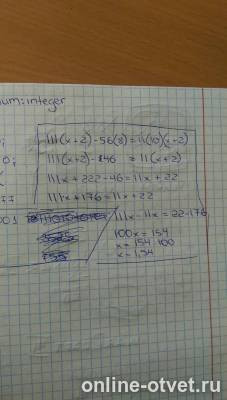 num:integer
111(x+2)-56(8)=11(10)(x-2)
111(x+2)-46 =11(x+2)
111x+222-46=11x+22
111x+176=11x+22
111x-11x=22-176
100x=154
x=154 100
x=1,54
online-otvet.ru